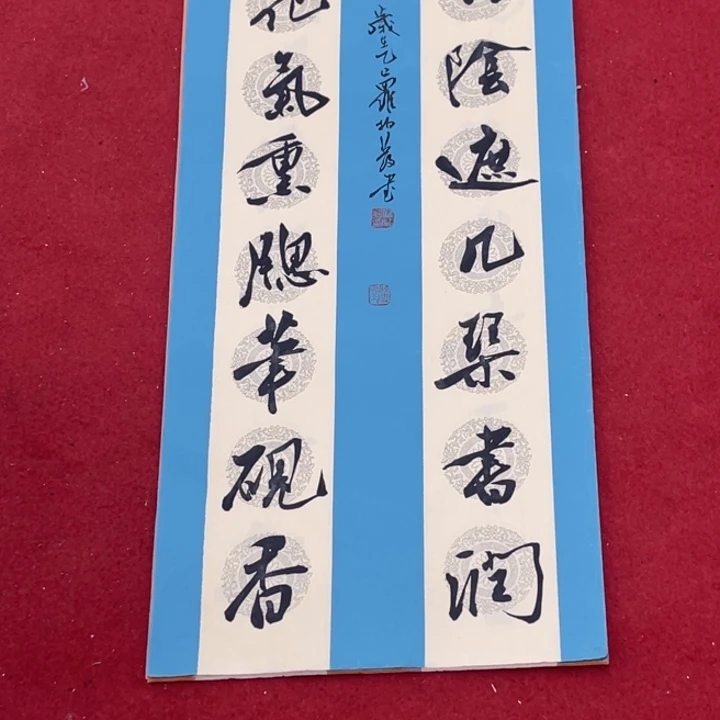 陰遮几琴書潤
花氣熏牕筆硯香
歲在乙巳羅
書